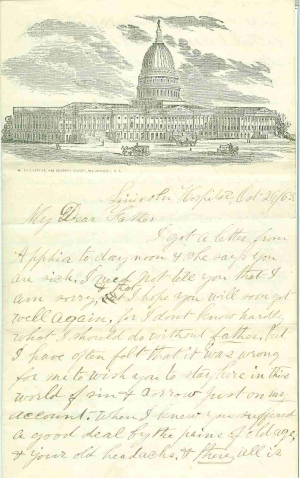 Lincoln Hospital, Oct 26/63
My Dear Father
I got a letter from
Apphia to day noon & she says you
are sick. I just tell you that I
am sorry, & that I hope you will soon get
well again, for I dont know hardly
what I should do without father. But
I have often felt that it was wrong
for me to wish you to stay here in this
world of sin & sorrow just on my
account. When I knew you suffered
a good deal by the pains of old age,
& your old headachs. & there, all is